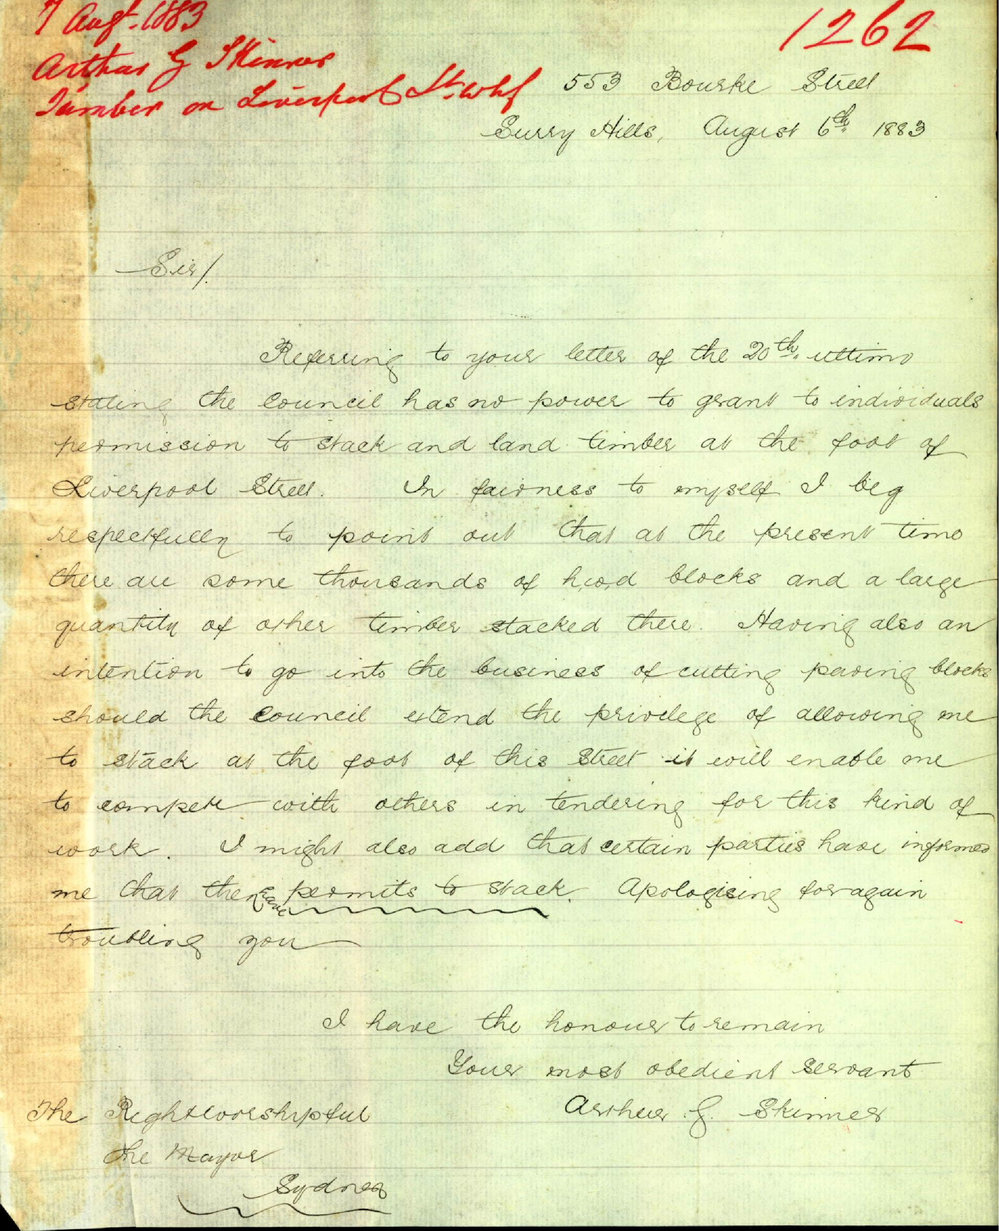 7 Augt. 1883
Arthur G Skinner
Timber on Liverpool St. Whf
1262
553 Bourke Street
Surry Hills, August 6th 1883
Sir/.
Referring to your letter of the 20th. ultimo
stating the Council has no power to grant to individuals
permission to stack and land timber at the foot of
Liverpool Street. In fairness to myself I beg
respectfully to point out that at the present time
there are some thousands of h.w.d blocks and a large
quantity of other timber stacked there. Having also an
intention to go into the business of cutting paving blocks
should the Council extend the privilege of allowing me
to stack at the foot of this Street it will enable me
to compete with others in tendering for this kind of
work. I might also add that certain parties have informed
me that they have permits to stack. Apologising for again
troubling you
I have the honour to remain
Your most obedient servant
Arthur G. Skinner
The Right Worshipful
The Mayor
Sydney